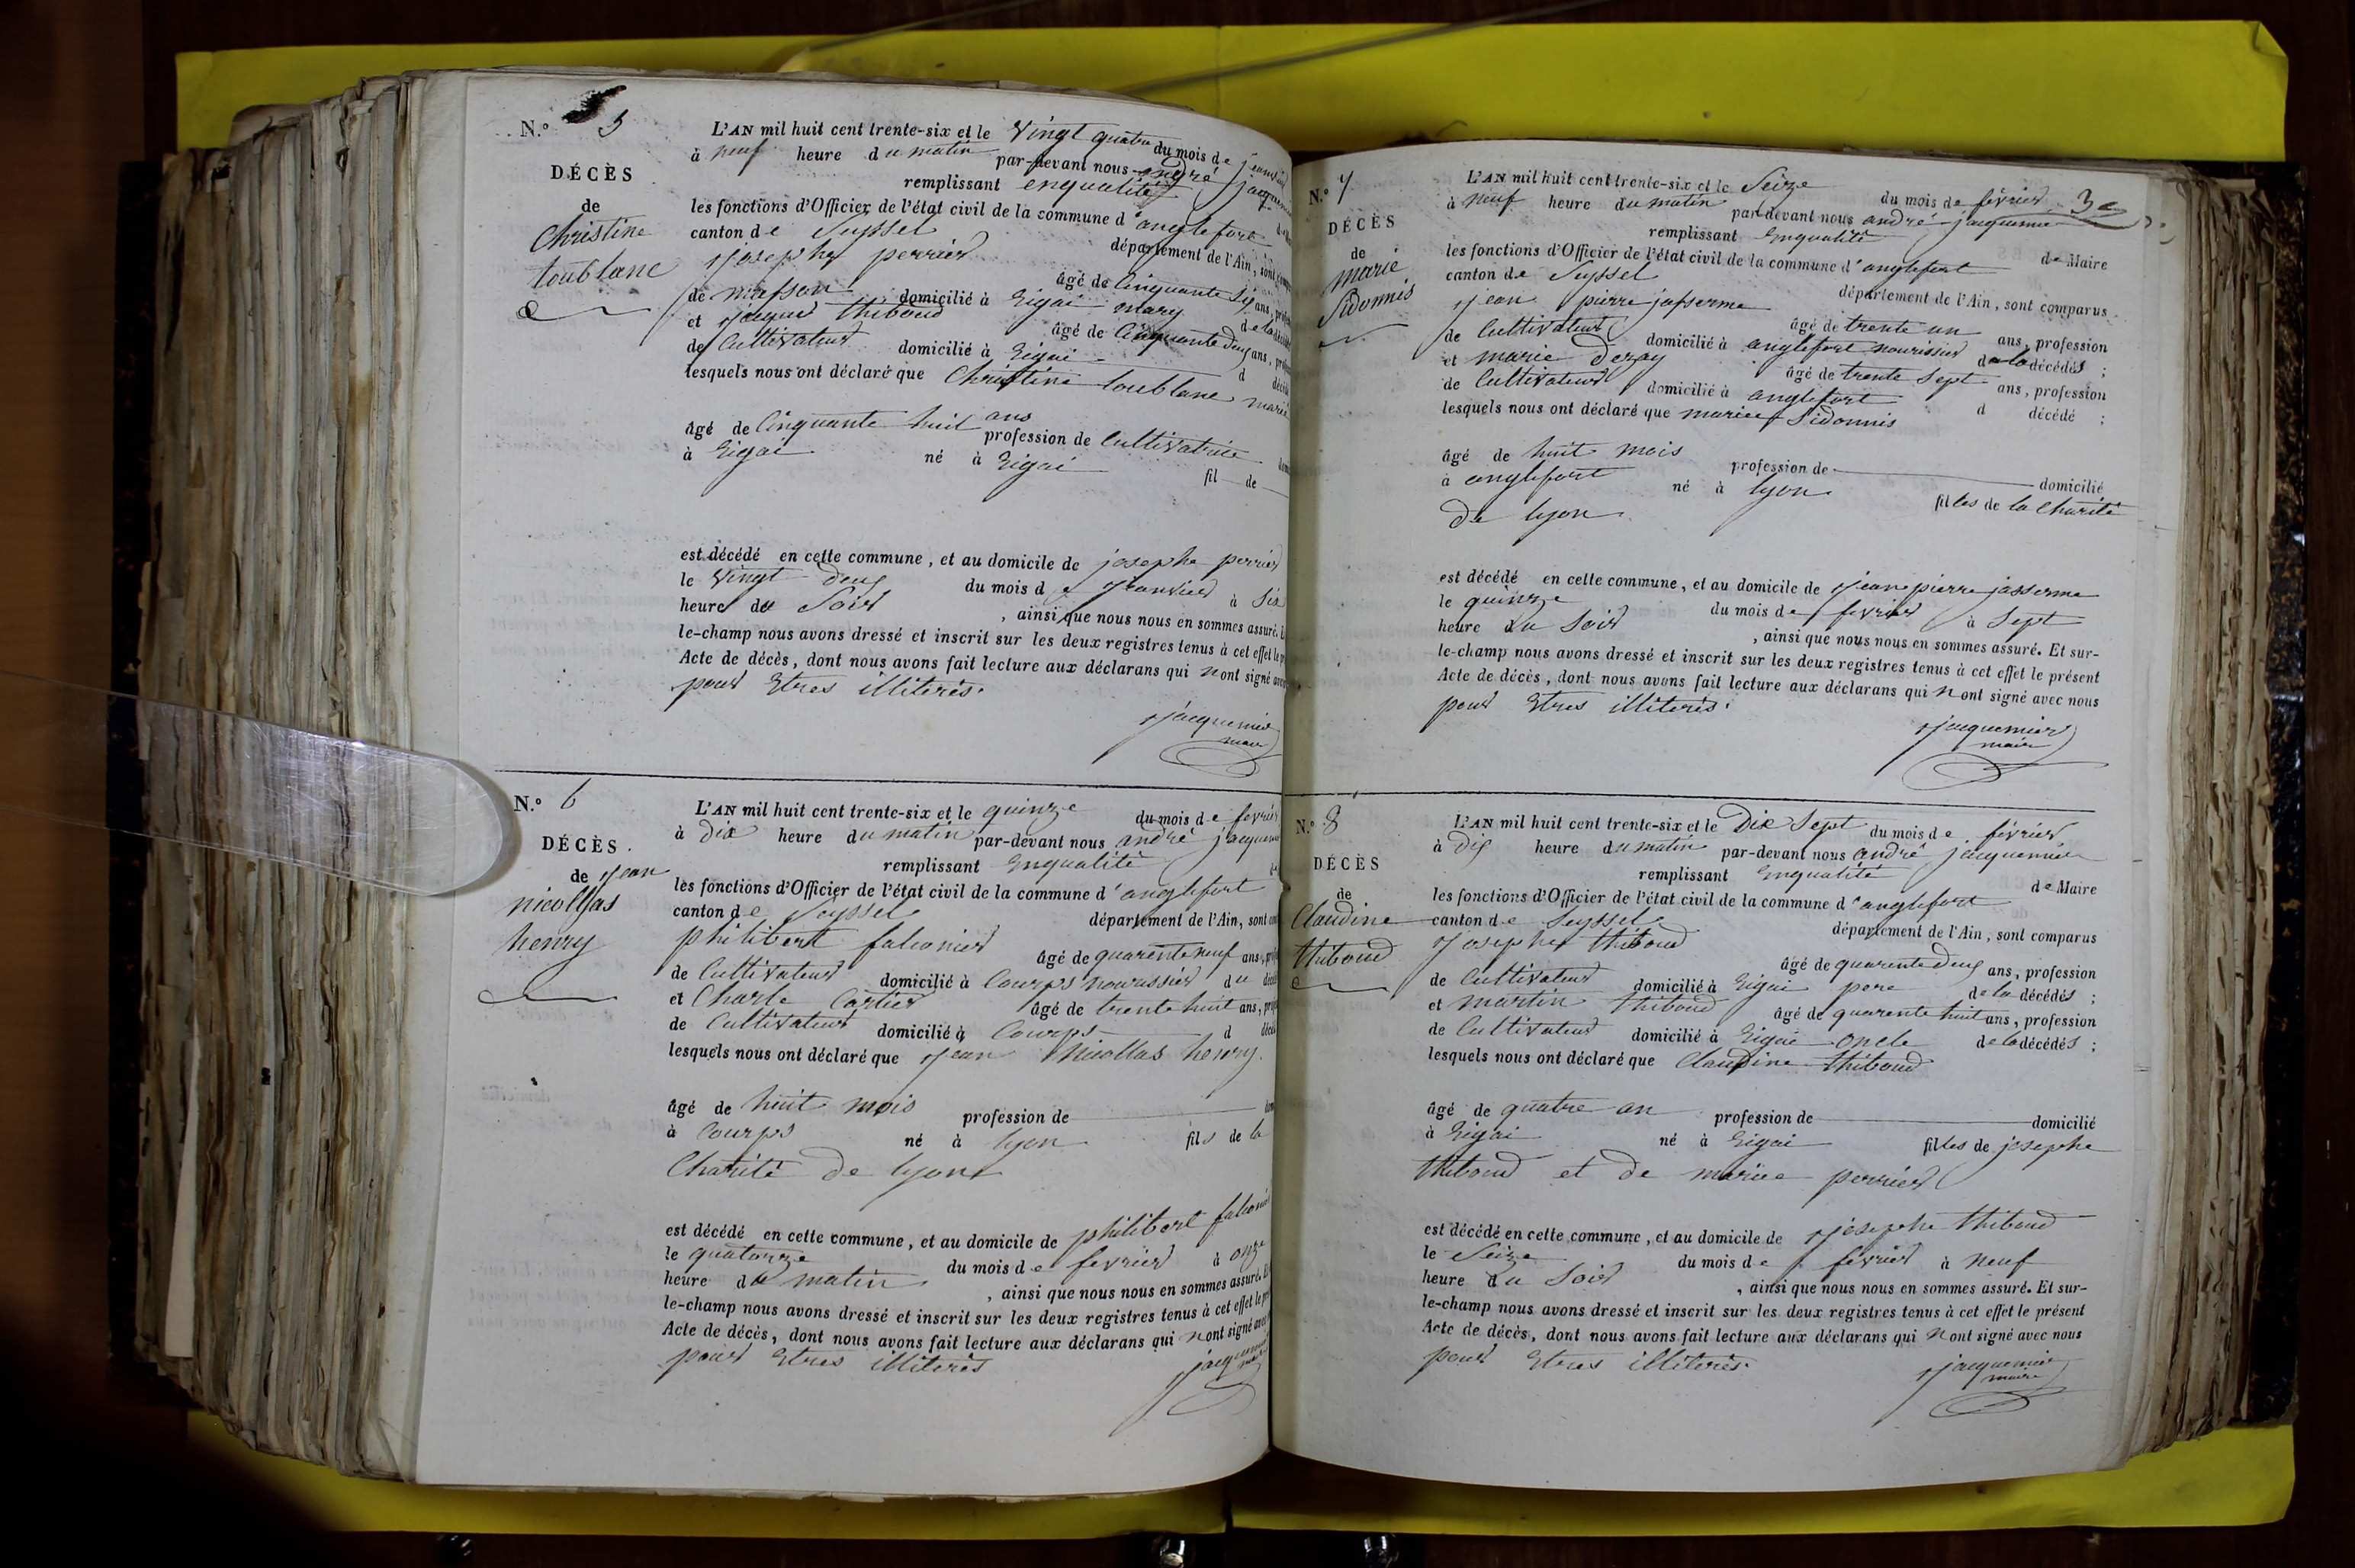 N.° 5
DÉCÈS
de
Christine
toublanc
L'AN mil huit cent trente-six et le vingt quatre du mois de janvier
à neuf heure du matin par-devant nous andré
remplissant enqualité
les fonctions d'Officier de l'état civil de la commune d'anglefort
canton de Seyssel département de l'Ain, sont
josephe perrier âgé de Cinquante six ans,
de masson domicilié à Eigai mary de la
et jacques thiboud âgé de Cinquante deux ans,
de Cultivateur domicilié à Eigai d
lesquels nous ont déclaré que Christine toublanc
âgé de Cinquante huit ans profession de Cultivatrice
à Eigai né à Eigai fil de
est décédé en cette commune, et au domicile de josephe perrier
le vingt deux du mois de janvier à six
heure du Soir , ainsi que nous nous en sommes assuré.
le-champ nous avons dressé et inscrit sur les deux registres tenus à cet effet le
Acte de décès, dont nous avons fait lecture aux déclarans qui n'ont signé
pour Etres illiterés.
jacquemier
maire
N.° 6
DÉCÈS.
de jean
nicollas
henry
L'AN mil huit cent trente-six et le quinze du mois de fevrier
à dix heure du matin par-devant nous andré
remplissant Enqualité
les fonctions d'Officier de l'état civil de la commune d'anglefort
canton de Seyssel département de l'Ain, sont
philibert falconier âgé de quarente neuf ans,
de Cultivateur domicilié à Courps nourassier du
et Charle Cartier âgé de trente huit ans,
de Cultivateur domicilié à Courps d
lesquels nous ont déclaré que jean Nicollas henry.
âgé de huit mois profession de
à Courps né à lyon fils de la
Charité de lyon
est décédé en cette commune, et au domicile de philibert
le quatorze du mois de fevrier à onze
heure du matin , ainsi que nous nous en sommes assuré.
le-champ nous avons dressé et inscrit sur les deux registres tenus à cet effet le
Acte de décès, dont nous avons fait lecture aux déclarans qui n'ont signé
pour Etres illiterés
N.° 7
DÉCÈS
de
marie
Sidonnis
L'AN mil huit cent trente-six et le Seize du mois de février
à neuf heure du matin par-devant nous andré jacquemier
remplissant Enqualité de Maire
les fonctions d'Officier de l'état civil de la commune d'anglefort
canton de Seyssel département de l'Ain, sont comparus
jean pierre jasserme âgé de trente un ans, profession
de Cultivateur domicilié à anglefort nourissier de la décédés ;
et marie dezay âgé de trente Sept ans, profession
de Cultivateur domicilié à anglefort d décédé ;
lesquels nous ont déclaré que mariee Sidonnis
âgé de huit mois profession de domicilié
à anglefort né à lyon filles de la Charité
de lyon
est décédé en cette commune, et au domicile de jean pierre jasserme
le quinze du mois de fevrier à Sept
heure du Soir , ainsi que nous nous en sommes assuré. Et sur-
le-champ nous avons dressé et inscrit sur les deux registres tenus à cet effet le présent
Acte de décès, dont nous avons fait lecture aux déclarans qui n'ont signé avec nous
pour Etres illiterés.
jacquemier
maire
N.° 8
DÉCÈS
de
Claudine
thiboud
L'AN mil huit cent trente-six et le Dix Sept du mois de février
à dix heure du matin par-devant nous andré jacquemier
remplissant Enqualité de Maire
les fonctions d'Officier de l'état civil de la commune d'anglefort
canton de Seyssel département de l'Ain, sont comparus
josephe thiboud âgé de quarente deux ans, profession
de Cultivateur domicilié à Eigai pere de la décédés ;
et martin thiboud âgé de quarente huit ans, profession
de Cultivateur domicilié à Eigai oncle de la décédés ;
lesquels nous ont déclaré que Claudine thiboud
âgé de quatre an profession de domicilié
à Eigai né à Eigai filles de josephe
thiboud et de mariee perrier
est décédé en cette commune, et au domicile de josephe thiboud
le Seize du mois de février à neuf
heure du Soir , ainsi que nous nous en sommes assuré. Et sur-
le-champ nous avons dressé et inscrit sur les deux registres tenus à cet effet le présent
Acte de décès, dont nous avons fait lecture aux déclarans qui n'ont signé avec nous
pour Etres illiterés.
jacquemier
maire